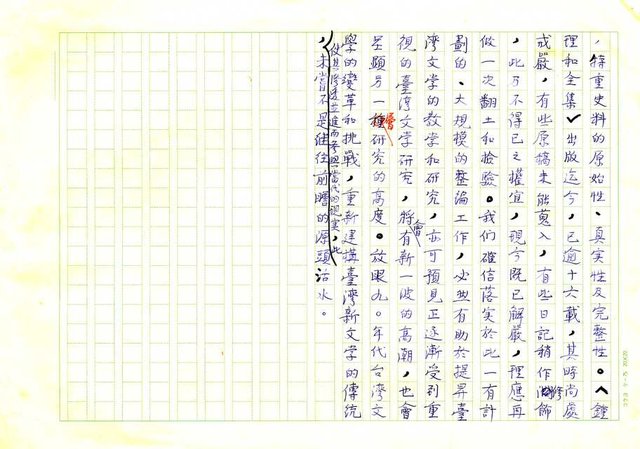 ，特重史料的原始性、真实性及完整性。︽鍾
理和全集︾出版迄今，已逾十六載，其時尚處
戒嚴，有些原稿未能蒐入，有些日記稍作修飾
，此乃不得已之權宜，現今既已解嚴，理應再
做一次翻土和檢驗。我們確信落实於此一有計
劃的、大規模的整編工作，必然有助於提昇臺
灣文学的教学和研究，亦可預見正逐漸受到重
視的臺灣文学研究，將會有新一波的高潮，也會
呈顯另一層研究的高度。放眼九〇年代台灣文
學的变革和挑戰，重新建構臺灣新文学的傳統
，使其滲透並進而参與當代的現實，此
未嘗不是继往前瞻的源頭活水。